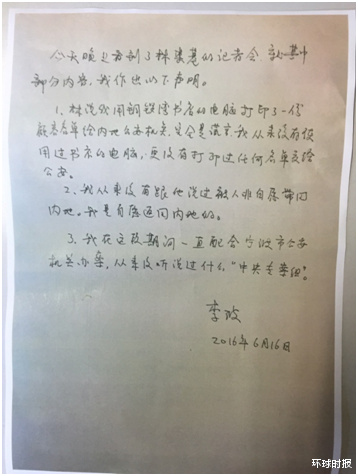 今天晚上看到了林荣基的记者会，就其中
部分内容，我作出以下声明。
1、林说我用铜锣湾书店的电脑打印了一份
顾客名单给内地公安机关，完全是谎言，我从来没有使
用过书店的电脑，更没有打印过任何名单交给
公安。
2、我从来没有跟他说过被人非自愿带回
内地。我是自愿返回内地的。
3、我在这段期间一直配合宁波市公安
机关办案，从来没听说过什么“中央专案组”。
李波
2016年6月16日
环球时报